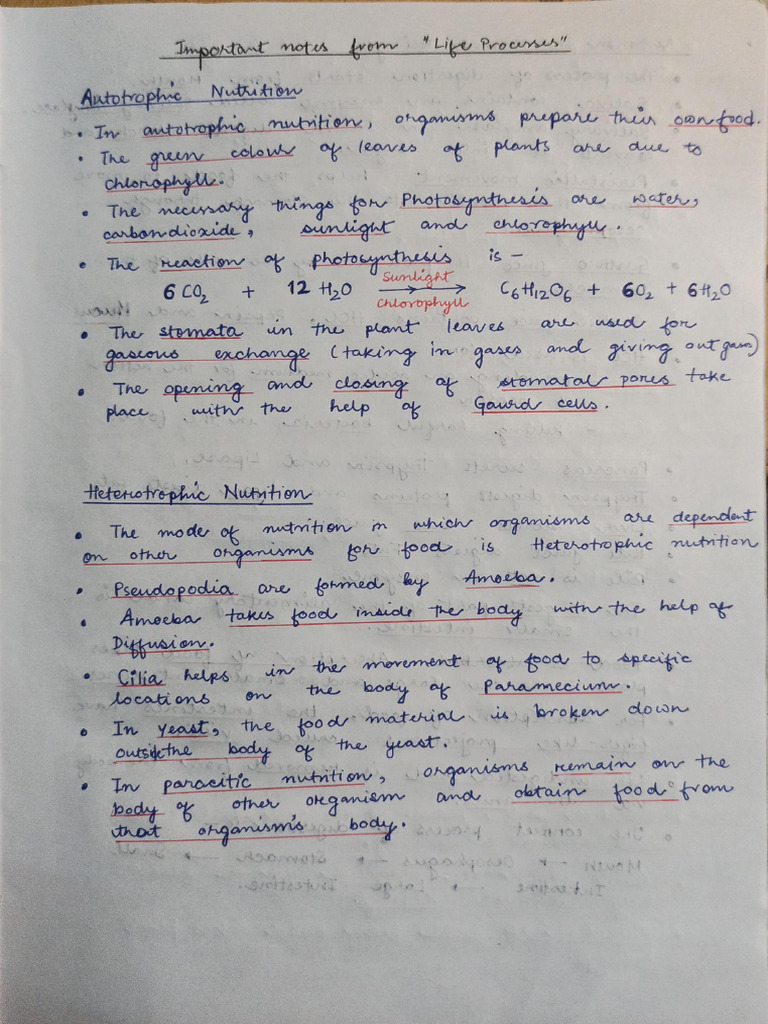 Important notes from "Life Processes"
Autotrophic Nutrition
• In autotrophic nutrition, organisms prepare their own food.
• The green colour of leaves of plants are due to
chlorophyll.
• The necessary things for Photosynthesis are water,
carbondioxide, sunlight and chlorophyll.
• The reaction of photosynthesis is —
6 CO2 + 12 H2O Sunlight Chlorophyll → C6H12O6 + 6O2 + 6H2O
• The stomata in the plant leaves are used for
gaseous exchange (taking in gases and giving out gases)
• The opening and closing of stomatal pores take
place with the help of Gaurd cells.
Heterotrophic Nutrition
• The mode of nutrition in which organisms are dependent
on other organisms for food is Heterotrophic nutrition
• Pseudopodia are formed by Amoeba.
• Amoeba takes food inside the body with the help of
Diffusion.
• Cilia helps in the movement of food to specific
locations on the body of Paramecium.
• In yeast, the food material is broken down
outside the body of the yeast.
• In paracitic nutrition, organisms remain on the
body of other organism and obtain food from
that organism's body.